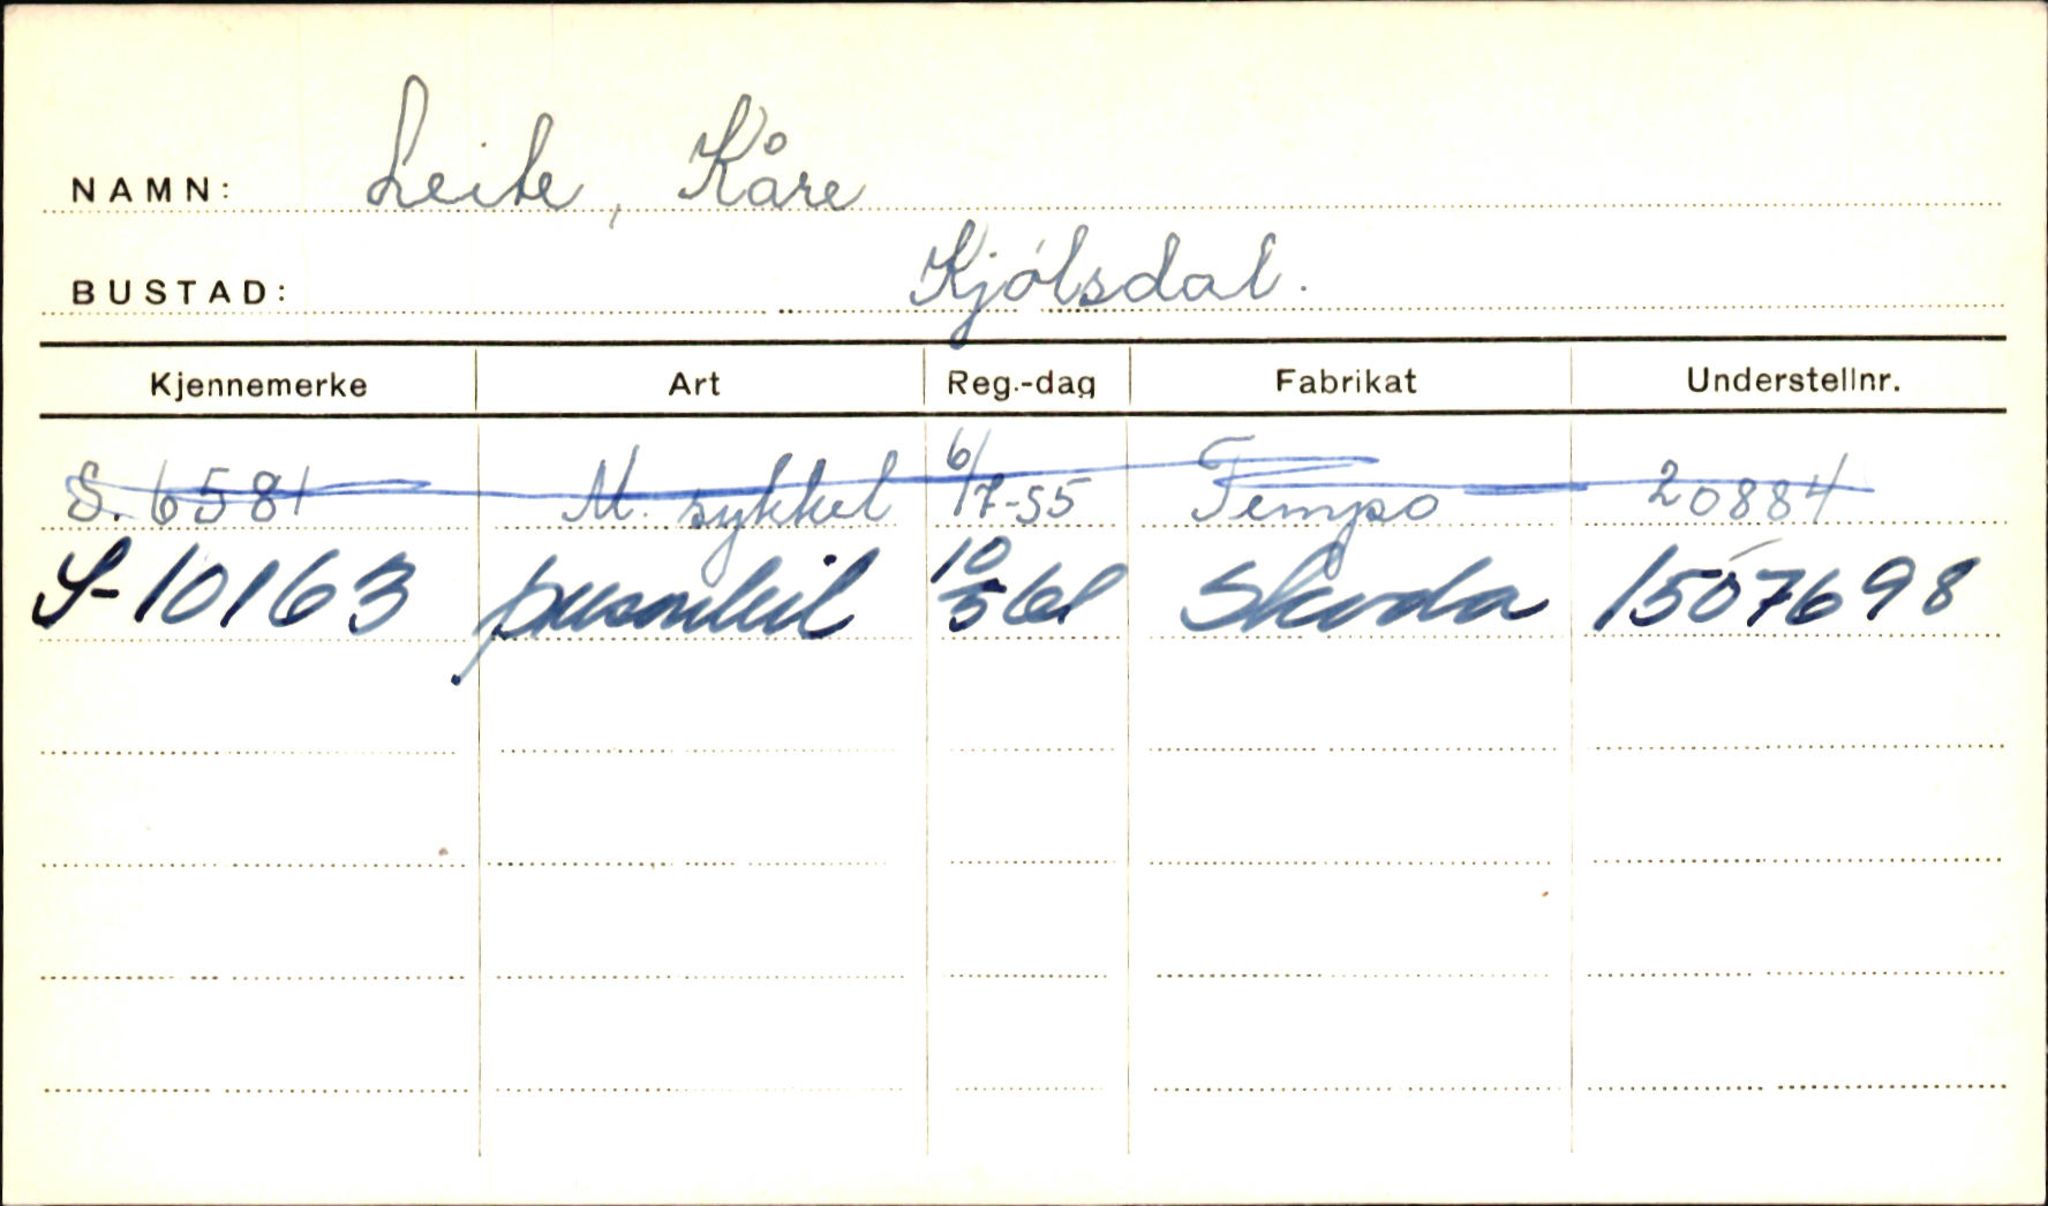 NAMN: Leite, Kåre
BUSTAD: Kjølsdal.
Kjennemerke Art Reg.-dag Fabrikat Understellnr.
S. 6581 M. sykkel 6/7-55 Tempo 20884
S-10163 personbil 10/5 61 Skoda 1507698